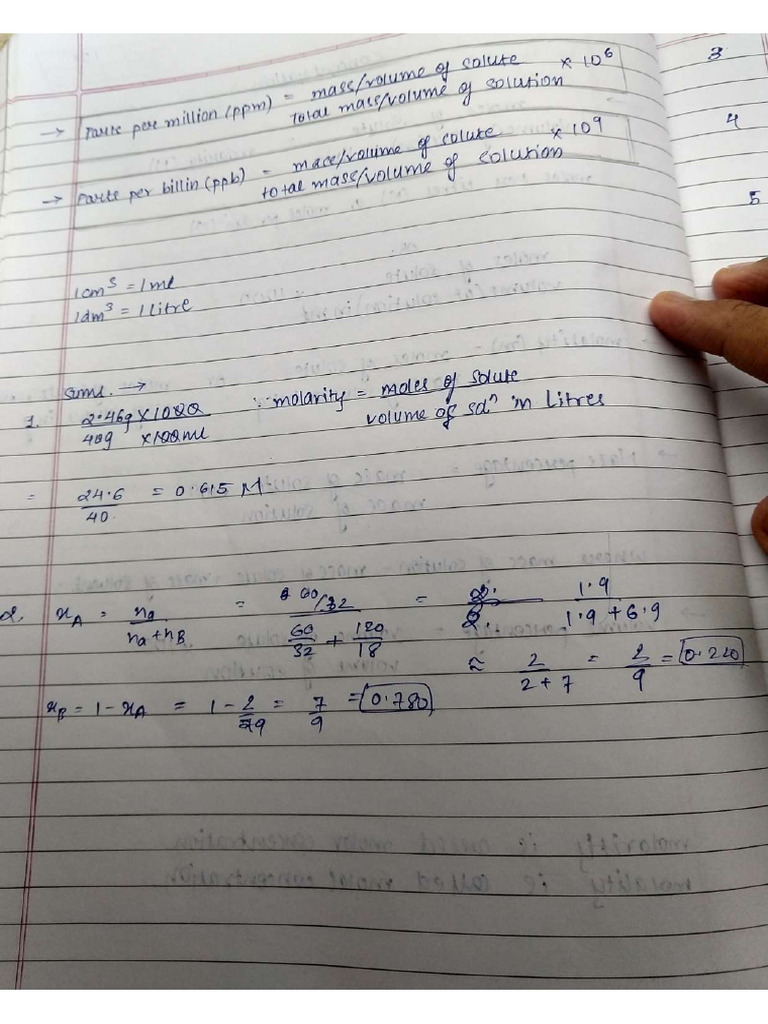 3
→ Parts per million (ppm) = mass/volume of solute / total mass/volume of solution × 10⁶
4
→ Parts per billin (ppb) = mass/volume of solute / total mass/volume of solution × 10⁹
5
1cm³ = 1ml
1dm³ = 1 litre
Sums. →
1. 2.46g × 1000 / 40g × 100ml ∵ molarity = moles of solute / volume of solⁿ in litres
= 24.6 / 40 = 0.615 M
2. xA = na / na + nB = 60/32 / 60/32 + 120/18 = 1.9 / 1.9 + 6.9
≈ 2 / 2 + 7 = 2 / 9 = 0.220
xB = 1 - xA = 1 - 2 / 9 = 7 / 9 = 0.780